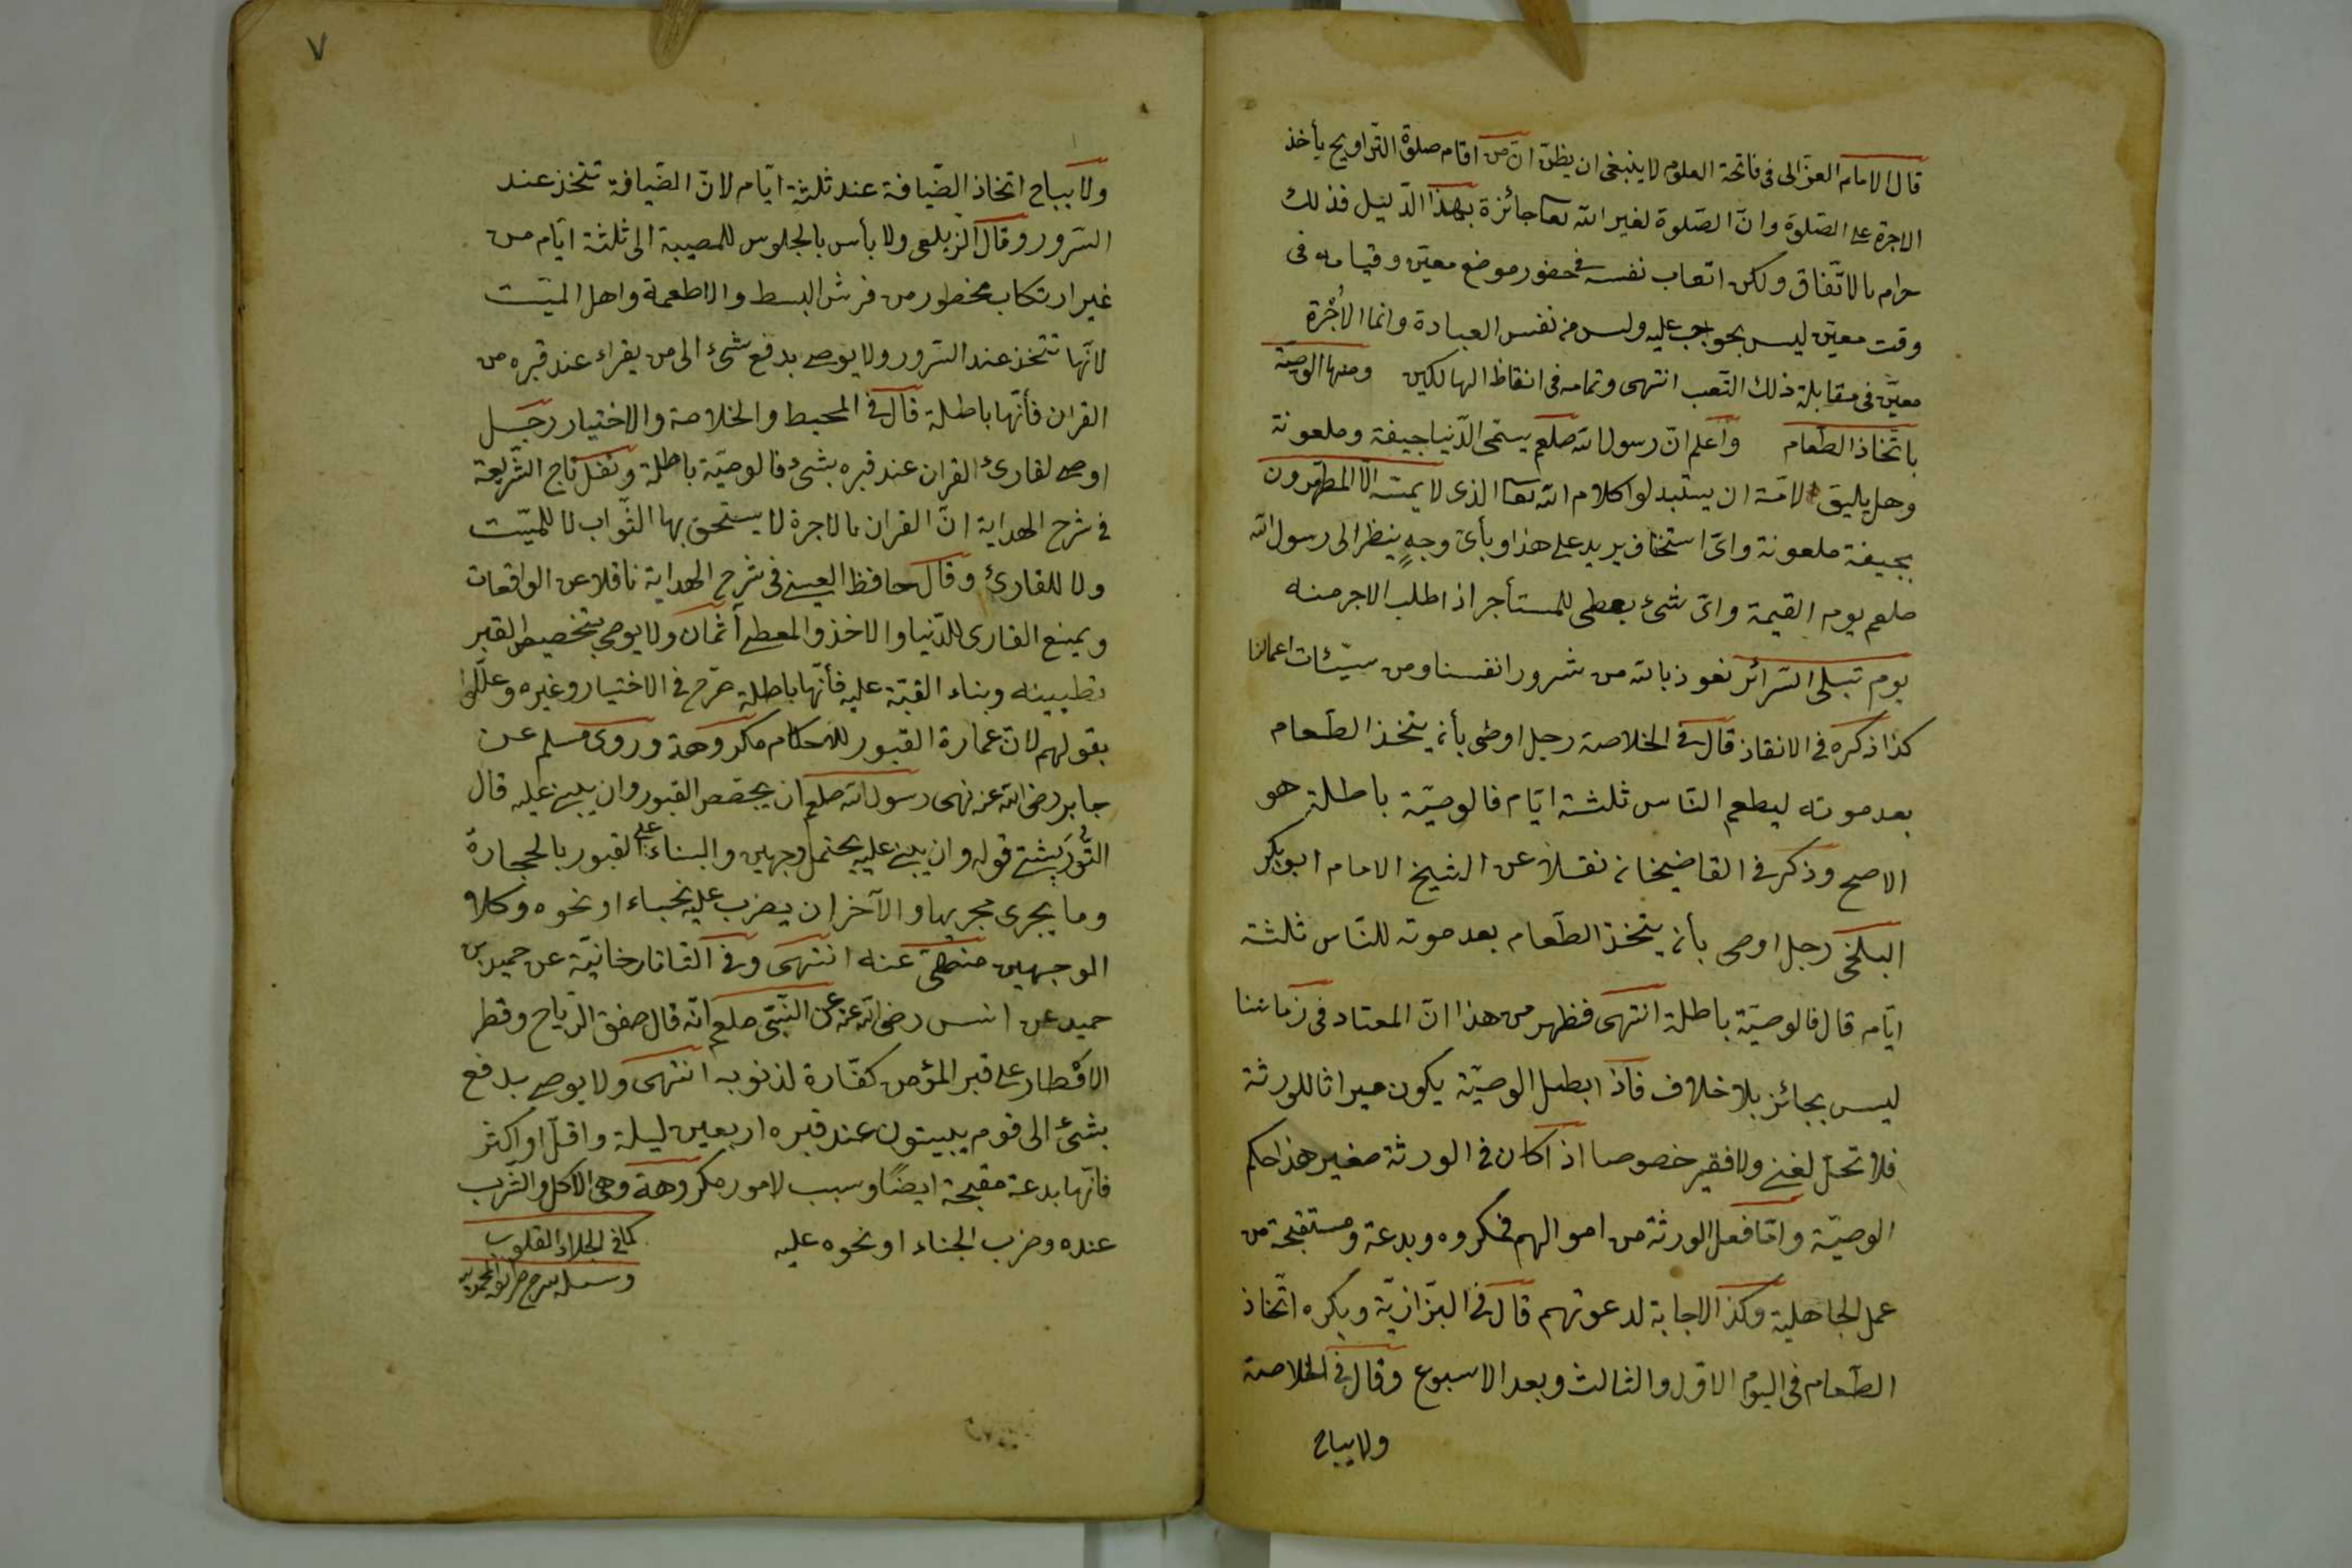 قال الامام الغزالى فى فاتحة العلوم لا ينبغى ان يظنّ انّ من اقام صلوة التّراويح يأخذ
الاجرة على الصّلوة وانّ الصّلوة لغير الله تعا جائزة بهذا الدّليل فذلك
حرام بالاتّفاق ولكن اتعاب نفسه فى حضور موضع معيّن وقيامه فى
وقت معيّن ليس بواجب عليه وليس من نفس العبادة وانما الأجرة
معيّن فى مقابلة ذلك التّعب انتهى وتمامه فى انقاظ الهالكين ومنها الوصيّة
باتّخاذ الطّعام واعلم انّ رسول الله صلعم يسمّى الدّنيا جيفة وملعونة
وهل يليق لامّة ان يستبدلوا كلام الله تعا الذى لا يمسّه الّا المطهّرون
بجيفة ملعونة واىّ استخفاف يريد على هذا وبأىّ وجهٍ ينظر الى رسول الله
صلعم يوم القيمة واىّ شىء يعطى للمستأجر اذا طلب الاجر منه
يوم تبلى السّرائر نعوذ بالله من شرور انفسنا ومن سيّئات اعمالنا
كذا ذكره فى الانقاذ قال فى الخلاصة رجل اوصى بأن يتخذ الطّعام
بعد موته ليطعم النّاس ثلثة ايّام فالوصيّة باطلة هو
الاصح وذكر فى القاضيخان نقلا عن الشيخ الامام ابو بكر
البلخى رجل اوصى بأن يتخذ الطّعام بعد موته للنّاس ثلثة
ايّام قال فالوصيّة باطلة انتهى فظهر من هذا انّ المعتاد فى زماننا
ليس بجائز بلا خلاف فاذا ابطل الوصيّة يكون ميراثا للورثة
فلا تحلّ لغنى ولا فقير خصوصا اذا كان فى الورثة صغير هذا حكم
الوصيّة وامّا فعل الورثة من اموالهم فمكروه وبدعة ومستقبحة من
عمل الجاهلية وكذا الاجابة لدعوتهم قال فى البزّازيّة ويكره اتّخاذ
الطّعام فى اليوم الاوّل والثالث وبعد الاسبوع وقال فى الخلاصة
ولا يباح
٧
ولا يباح اتخاذ الضّيافة عند ثلثة ايّام لانّ الضّيافة تتخذ عند
السّرور وقال الزيلعى ولا بأس بالجلوس للمصيبة الى ثلثة ايّام من
غير ارتكاب مخظور من فرش البسط والاطعمة واهل الميّت
لانّها تتخذ عند السّرور ولا يوصى بدفع شىء الى من يقراء عند قبره من
القران فأنّها باطلة قال فى المحيط والخلاصة والاختيار رجل
اوصى لقارئ القران عند قبره بشىء فالوصيّة باطلة ونقل تاج الشّريعة
فى شرح الهداية انّ القران بالاجرة لا يستحق بها الثّواب لا للميّت
ولا للقارئ وقال حافظ العينى فى شرح الهداية ناقلا عن الواقعات
ويمنع القارى للدّنيا والاخذ والمعطى أثمان ولا يوصى بتخصيص القبر
تطيينه وبناء القبّة عليه فأنّها باطلة صرّح فى الاختيار وغيره وعلّلوا
بقولهم لانّ عمارة القبور للاحكام مكروهة وروى مسلم عن
جابر رضى الله عنه نهى رسول الله صلعم ان يجصّص القبور وان يبنى عليه قال
التّوربشتى قوله وان يبنى عليه يحتمل وجهين والبناء على القبور بالحجارة
وما يجرى مجريها والآخر ان يضرب عليه نحباء او نحوه وكلا
الوجهين منهىّ عنه انتهى وفى التاتارخانيّة عن حميد بن
حميد عن انس رضى الله عنه عن النّبىّ صلعم انّه قال صفق الرّياح وقطر
الاقطار على قبر المؤمن كفّارة لذنوبه انتهى ولا يوصى بدفع
بشىء الى قوم يبيتون عند قبره اربعين ليلة واقلّ او اكثر
فانّها بدعة مقبحة ايضًا وسبب لامور مكروهة وهى الاكل والشّرب
عنده وضرب الجناء او نحوه عليه كما فى الجلاء القلوب